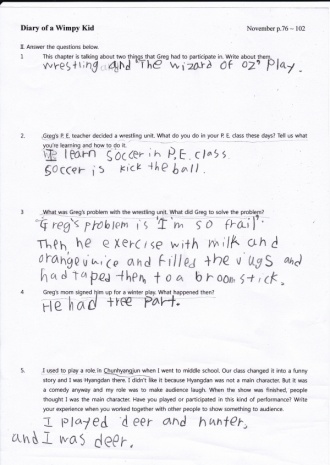 Diary of a Wimpy Kid
November p.76 – 102
II. Answer the questions below.
1 This chapter is talking about two things that Greg had to participate in. Write about them.
wrestling and 'The wizard of oz' Play.
2. Greg's P.E. teacher decided a wrestling unit. What do you do in your P.E. class these days? Tell us what
you're learning and how to do it.
I learn soccer in P.E. class.
soccer is kick the ball.
3 What was Greg's problem with the wrestling unit. What did Greg to solve the problem?
Greg's problem is 'I'm so frail'.
Then, he exercise with milk and
orange juice and filled the jugs and
had taped them to a broom stick.
4 Greg's mom signed him up for a winter play. What happened then?
He had tree part.
5. I used to play a role in Chunhyangjun when I went to middle school. Our class changed it into a funny
story and I was Hyangdan there. I didn't like it because Hyangdan was not a main character. But it was
a comedy anyway and my role was to make audience laugh. When the show was finished, people
thought I was the main character. Have you played or participated in this kind of performance? Write
your experience when you worked together with other people to show something to audience.
I played deer and hunter,
and I was deer.